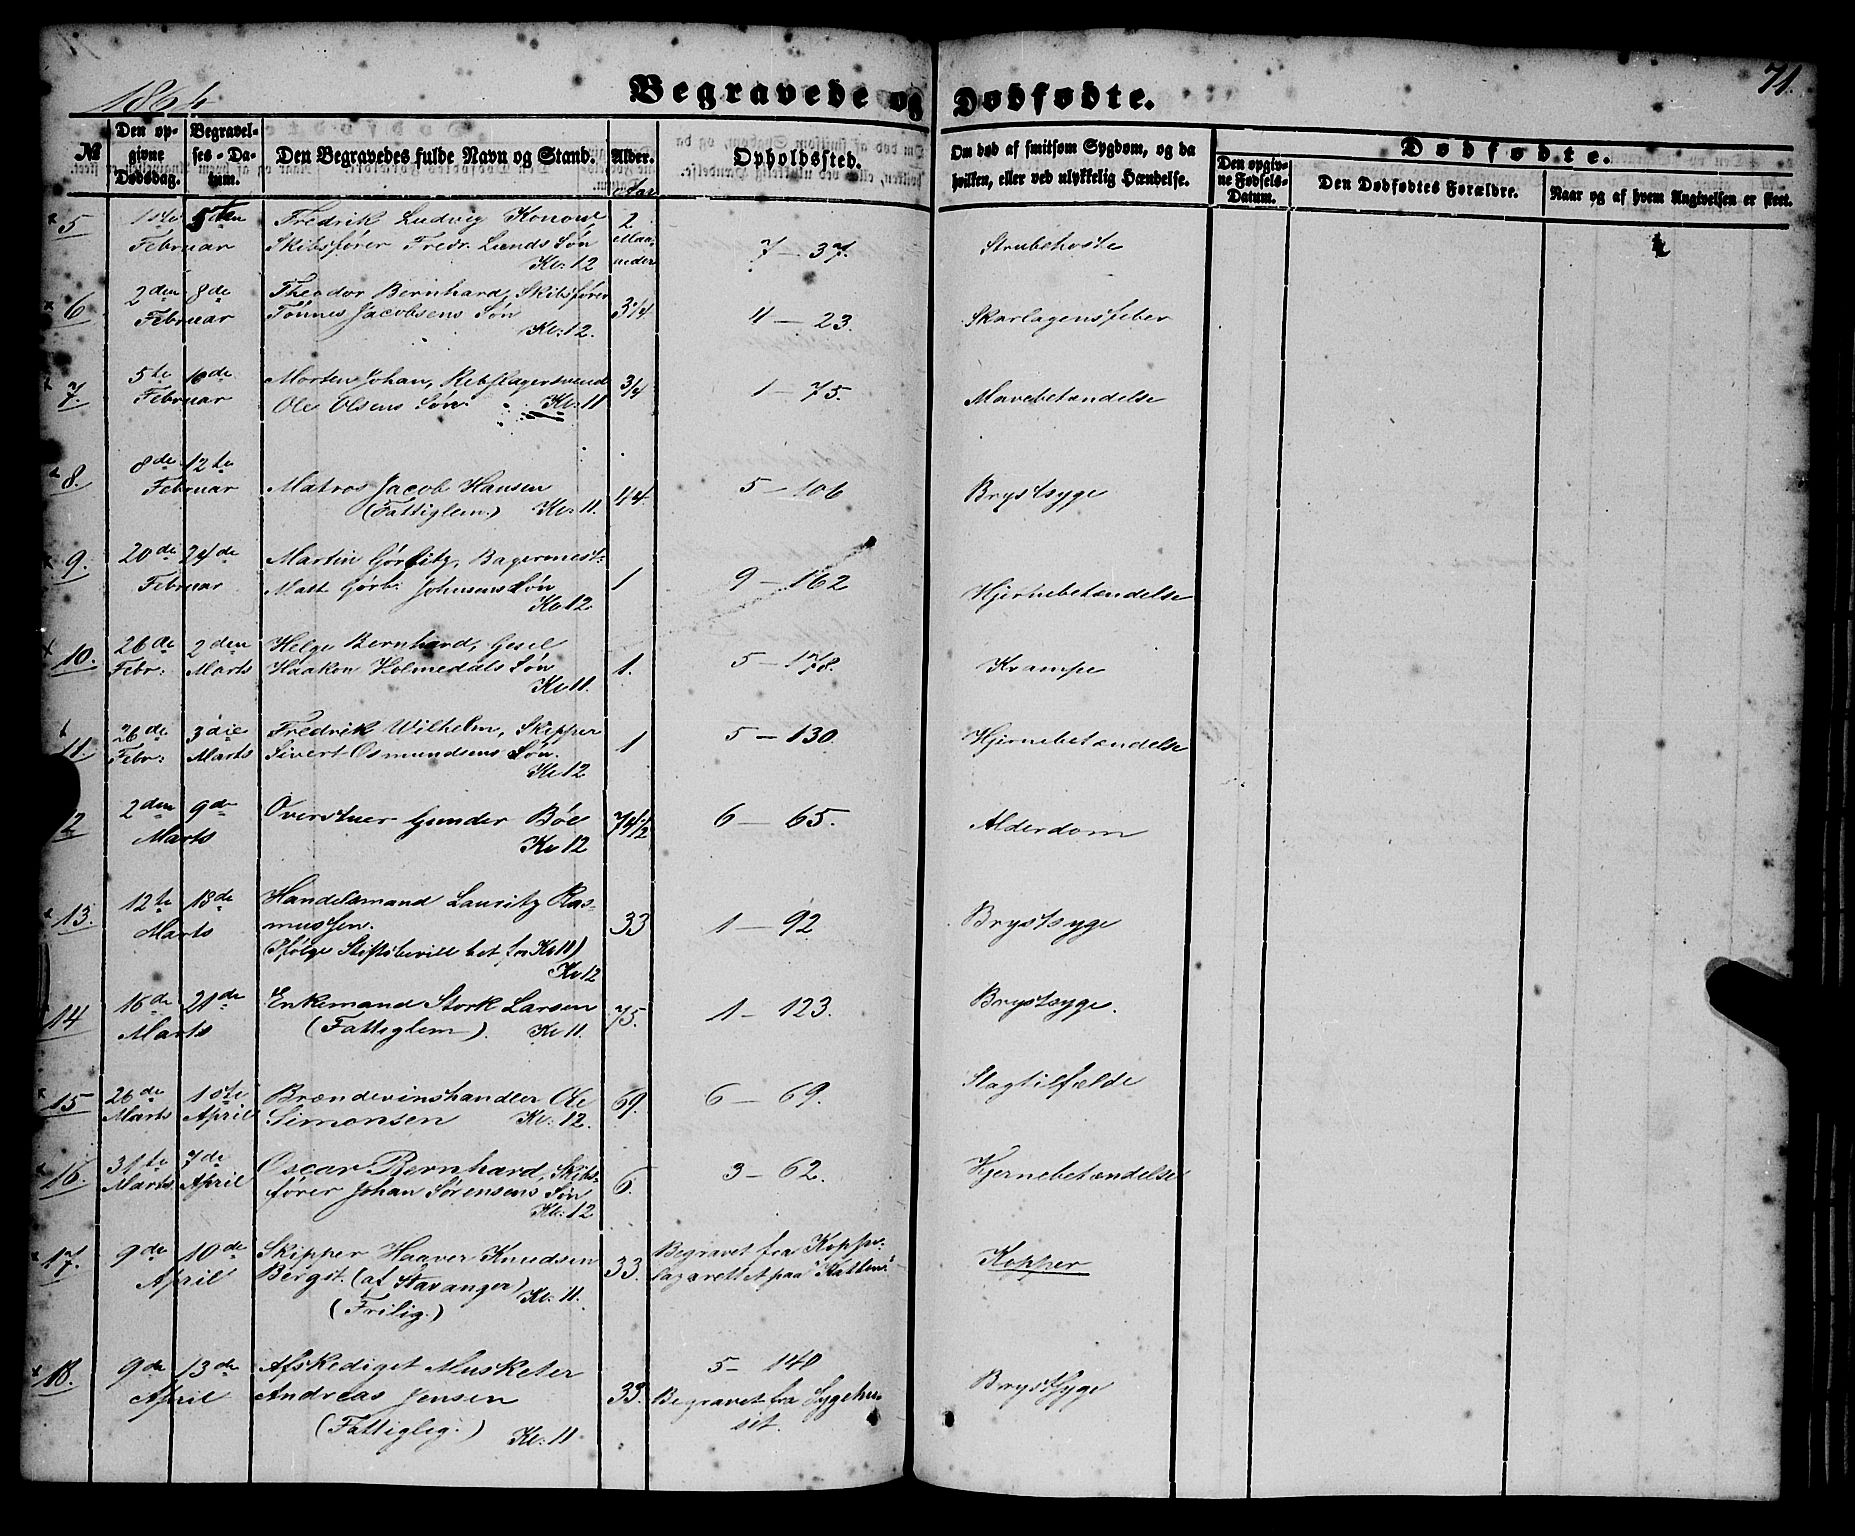 1864
Begravede og Dødfødte.
71.
№
Den opgivne Dødsdag.
Begravelses-Datum.
Den Begravedes fulde Navn og Stand.
Alder.
Aar
Opholdssted.
Om død af smitsom Sygdom, og da hvilken, eller ved ulykkelig Hændelse.
Dødfødte.
Den opgivne Fødsels-Datum.
Den Dødfødtes Forældre.
Naar og af hvem Angivelsen er skeet.
5 1ste 5ten Fredrik Ludvig Konow, 2
Februar Skibsfører Fredr. Lunds Søn Maaneder 7 – 37. Strubehoste
Kl: 12
6 2den 8de Theodor Bernhard, Skibsfører
Februar Tönnes Jacobsens Søn 3 1/4 4 – 23. Skarlagensfeber
Kl: 12.
7. 5te 10de Morten Johan, Rebslagersvend 3/4 1 – 75. Mavebetændelse
Februar Ole Olsens Søn. Kl: 11
8. 8de 12te
Februar Matros Jacob Hansen 44. 5 – 106 Brystsyge
(Fattiglem.) Kl: 11.
9. 20de 24de Martin Görbitz, Bagermest:
Februar Matt Görb: Johnsens Søn 1 9 – 162 Hjernebetændelse
Kl 12
10. 26de 2den Helge Bernhard, Gesel
Febr: Marts Haakon Holmedals Søn 1. 5 – 178. Krampe
Kl 11.
11. 26de 3die Fredrik Wilhelm, Skipper
Febr: Marts Sivert Osmundsens Søn. 1 5 – 130. Hjernebetændelse
Kl 12
12 2den 9de Overstuer Gunder Böe 74 1/2 6 – 65. Alderdom
Marts Kl 12
13. 12te 18de Handelsmand Lauritz Ras-
Marts mussen. 33 1 – 92. Brystsyge
Kl 12
14 16de 21de Enkemand Stork Larsen 75. 1 – 123. Brystsyge.
Marts (Fattiglem). Kl 11.
15 26de 10de Brændevinshandler Ole 69. 6 – 69. Slagtilfælde
Marts April Simonsen Kl: 12.
16. 31te 7de Oscar Bernhard, Skibs-
Marts April fører Johan Sörensens Søn 6. 3 – 62. Hjernebetændelse
Kl: 12
17. 9de 10de Skipper Haaver Knudsen 33. Begravet fra Koppe-
April Bergst. (af Stavanger) Kl: 11. lazarettet paa "Katten" Kopper
(Frilig.)
18. 9de 13de Afskediget Musketer 5 – 140
April Andreas Jensen 33. Begravet fra Sygehu- Brystsyge
(Fattiglig.) Kl: 11 set.